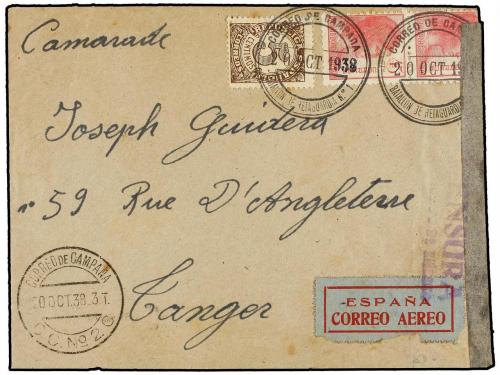 Camarade
CORREO DE CAMPAÑA
OCT 1938
BATALLON DE RETAGUARDIA Nº 1.
CORREO DE CAMPAÑA
20 OCT 19
BATALLON DE RETAGUARDIA
Joseph Guidera
nº 59 Rue D'Angleterre
Tanger
CORREO DE CAMPAÑA
20 OCT. 38. 3.T.
C.C. Nº 2
ESPAÑA
CORREO AEREO
ENSURA